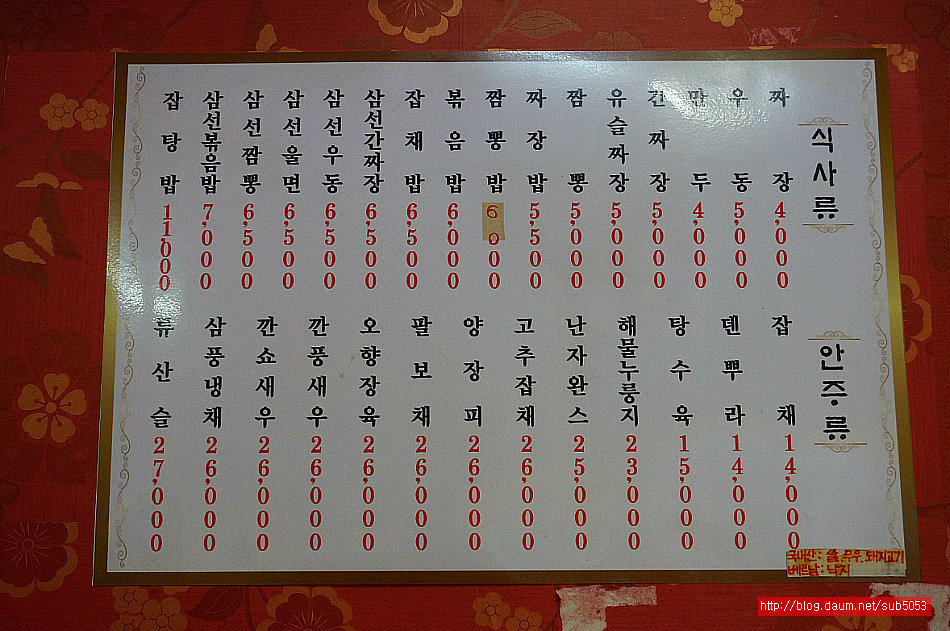 식사류
짜장 4,000
우동 5,000
만두 4,000
간짜장 5,000
유슬짜장 5,000
짬뽕 5,000
짜장밥 5,500
짬뽕밥 6,000
볶음밥 6,000
잡채밥 6,500
삼선간짜장 6,500
삼선우동 6,500
삼선울면 6,500
삼선짬뽕 6,500
삼선볶음밥 7,000
잡탕밥 11,000
안주류
잡채 14,000
덴뿌라 14,000
탕수육 15,000
해물누룽지 23,000
난자완스 25,000
고추잡채 26,000
양장피 26,000
팔보채 26,000
오향장육 26,000
깐풍새우 26,000
깐쇼새우 26,000
삼풍냉채 26,000
류산슬 27,000
국내산: 쌀, 무우, 돼지고기
베트남: 낙지
http://blog.daum.net/sub5053